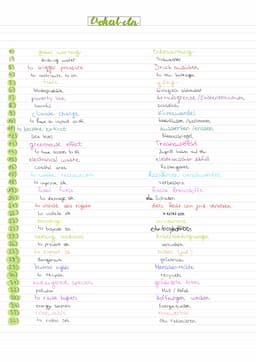 Vokabeln
global warming Erderwärmung
drinking water Trinkwasser
to trigger pressure Druck ausüben
to contribute to sth. zu etw. beitragen
toxic giftig
biodegradable biologisch abbaubar
poverty line Armutsgrenze / Existenzminimum
harmful schädlich
climate change Klimawandel
to have an impact on sth. beeinflussen / auswirken
to become extinct aussterben
sea level Meeresspiegel
greenhouse effect Treibhauseffekt
to have access to sth. Zugriff haben auf etw.
electronical waste elektronischer Abfall
coastal area Küstengebiet
to waste resources Ressourcen verschwenden
to improve sth. verbessern
fossil fuels fossile Brennstoffe
to damage sth. etw. Schaden
to violate sb's rights das Recht von jmd. verletzen
to violate sth.
to expose sb.
working conditions Arbeitsbedingungen
to prevent sth. vermeiden
to exploit sb.
dangerous gefährlich
human rights Menschenrechte
to recycle recyceln
endangered species gefährdete Arten
pollution
to raise hopes Hoffnungen wecken
energy sources Energiequelle
renewable erneuerbar
to reduce sth. etw. reduzieren